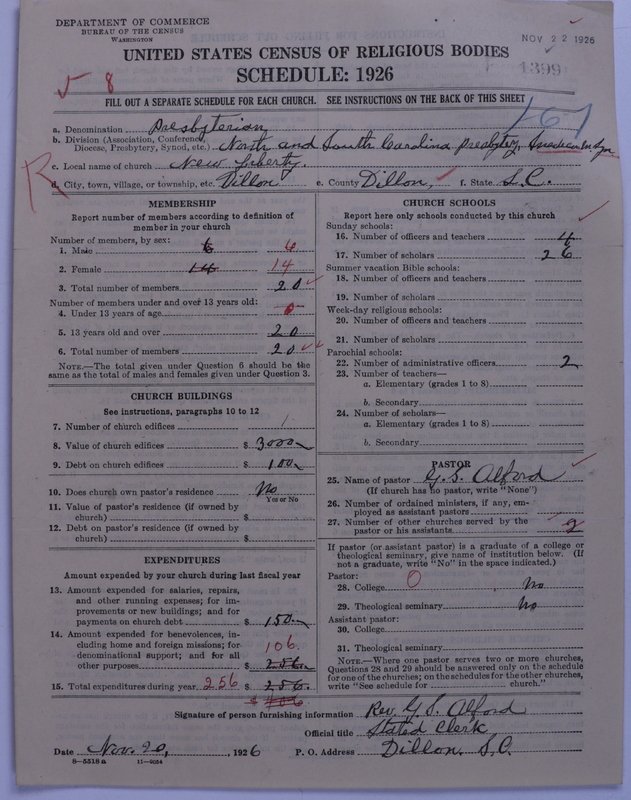 DEPARTMENT OF COMMERCE
BUREAU OF THE CENSUS
WASHINGTON
NOV 22 1926
UNITED STATES CENSUS OF RELIGIOUS BODIES
SCHEDULE: 1926
1399
8
FILL OUT A SEPARATE SCHEDULE FOR EACH CHURCH. SEE INSTRUCTIONS ON THE BACK OF THIS SHEET
167
a. Denomination Presbyterian
b. Division (Association, Conference, Diocese, Presbytery, Synod, etc.) North and South Carolina Presbytery,
c. Local name of church New Liberty.
R
d. City, town, village, or township, etc. Dillon e. County Dillon, f. State S.C.
MEMBERSHIP
Report number of members according to definition of member in your church
Number of members, by sex:
1. Male 6 6
2. Female 14 14
3. Total number of members 20
Number of members under and over 13 years old:
4. Under 13 years of age 0
5. 13 years old and over 20
6. Total number of members 20
NOTE.—The total given under Question 6 should be the same as the total of males and females given under Question 3.
CHURCH BUILDINGS
See instructions, paragraphs 10 to 12
7. Number of church edifices 1
8. Value of church edifices $ 3000
9. Debt on church edifices $ 100
10. Does church own pastor's residence No
Yes or No
11. Value of pastor's residence (if owned by church) $
12. Debt on pastor's residence (if owned by church) $
EXPENDITURES
Amount expended by your church during last fiscal year
13. Amount expended for salaries, repairs, and other running expenses; for improvements or new buildings; and for payments on church debt $ 150
14. Amount expended for benevolences, including home and foreign missions; for denominational support; and for all other purposes 106. $ 256
15. Total expenditures during year 256 $ 256.
$ 406
CHURCH SCHOOLS
Report here only schools conducted by this church
Sunday schools:
16. Number of officers and teachers 4
17. Number of scholars 26
Summer vacation Bible schools:
18. Number of officers and teachers
19. Number of scholars
Week-day religious schools:
20. Number of officers and teachers
21. Number of scholars
Parochial schools:
22. Number of administrative officers 2
23. Number of teachers—
a. Elementary (grades 1 to 8)
b. Secondary
24. Number of scholars—
a. Elementary (grades 1 to 8)
b. Secondary
PASTOR
25. Name of pastor G. S. Alford
(If church has no pastor, write "None")
26. Number of ordained ministers, if any, employed as assistant pastors
27. Number of other churches served by the pastor or his assistants 2
If pastor (or assistant pastor) is a graduate of a college or theological seminary, give name of institution below. (If not a graduate, write "No" in the space indicated.)
Pastor:
28. College 0 No
29. Theological seminary No
Assistant pastor:
30. College
31. Theological seminary
NOTE.—Where one pastor serves two or more churches, Questions 28 and 29 should be answered only on the schedule for one of the churches; on the schedules for the other churches, write "See schedule for church."
Signature of person furnishing information Rev. G S. Alford
Official title Stated Clerk
Date Nov. 20, 1926 P. O. Address Dillon, S.C.
8—5518a 11—9054